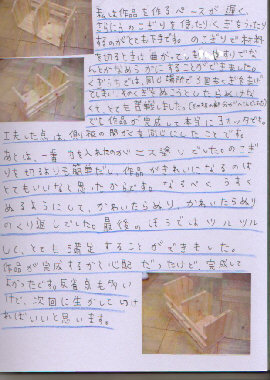 私は作品を作るペースが遅く、
さらにのこぎりを使ったりくぎをうったり
するのがとても下手です。のこぎりで材料
を切るときに曲がって
なんとか することができました。
くぎ 同じ場所で3回もくぎを
とても苦戦しました。
でも作品が完成して本当に
工夫した点は、側板の間かくを同じにしたことです。
あとは、一番力を入れたのがニス塗りでした。のこぎ
りを切るより簡単だし、作品がきれいになるのは
とてもいいなと思ったからです。なるべくうすく
ぬるようにして、かわいたらぬり、かわいたらぬり
のくり返しでした。最後のほうではツルツル
して、とても満足することができました。
作品が完成するか心配だったけど、完成して
よかったです。反省点も多い
けど、次回に生かして いけ
ればいいと思います。